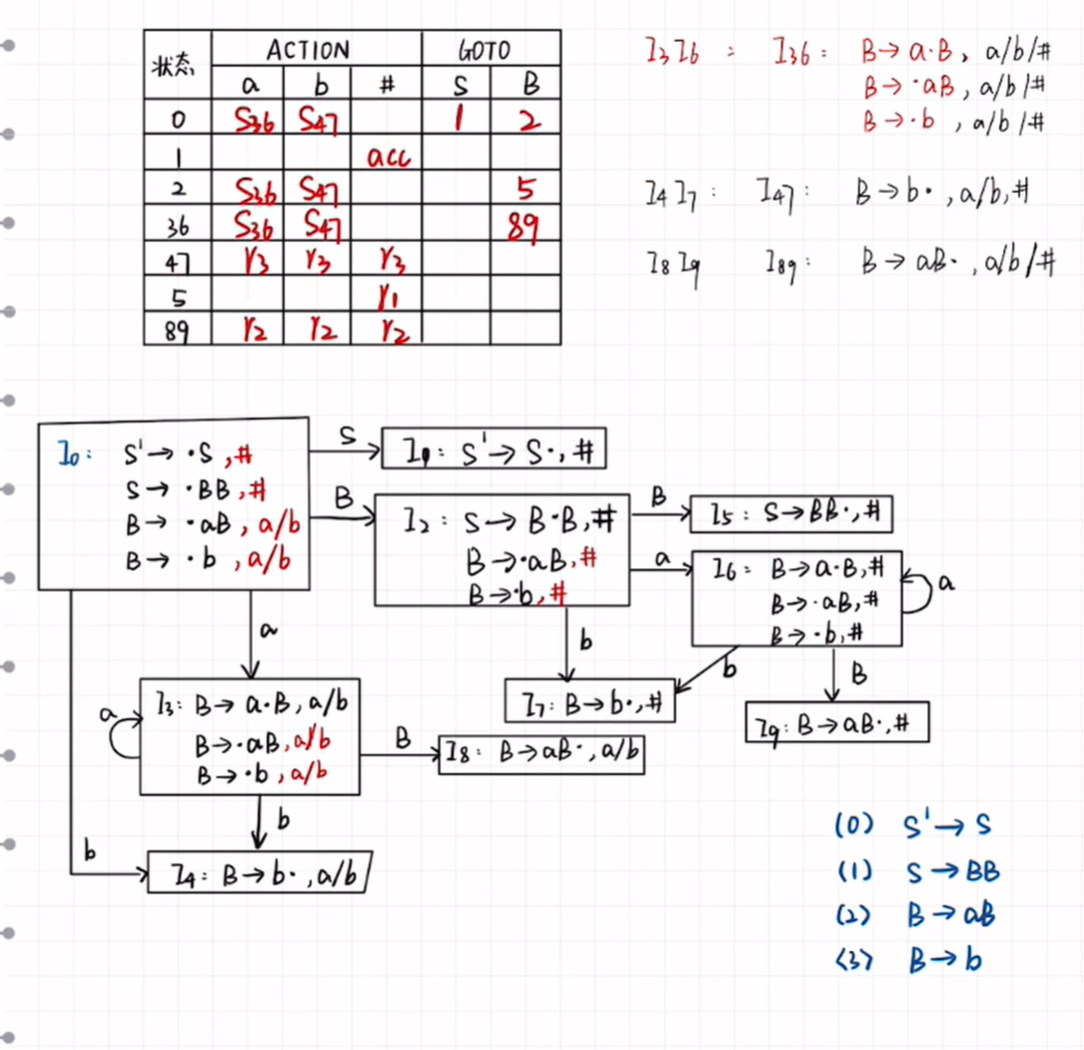 状态 ACTION GOTO
a b # S B
0 S36 S47 1 2
1 acc
2 S36 S47 5
36 S36 S47 89
47 r3 r3 r3
5 r1
89 r2 r2 r2
I3 I6 : I36: B→a·B, a/b/#
B→·aB, a/b/#
B→·b, a/b/#
I4 I7: I47: B→b·, a/b,#
I8 I9 I89: B→aB·, a/b/#
I0: S'→·S,#
S→·BB,#
B→·aB, a/b
B→·b, a/b
S
I1: S'→S·,#
B
I2: S→B·B,#
B→·aB,#
B→·b,#
B
I5: S→BB·,#
a
I6: B→a·B,#
B→·aB,#
B→·b,#
a
a
b
b
B
I3: B→a·B, a/b
B→·aB, a/b
B→·b, a/b
a
I7: B→b·,#
I9: B→aB·,#
B
I8: B→aB·, a/b
b
b
I4: B→b·, a/b
(0) S'→S
(1) S→BB
(2) B→aB
(3) B→b